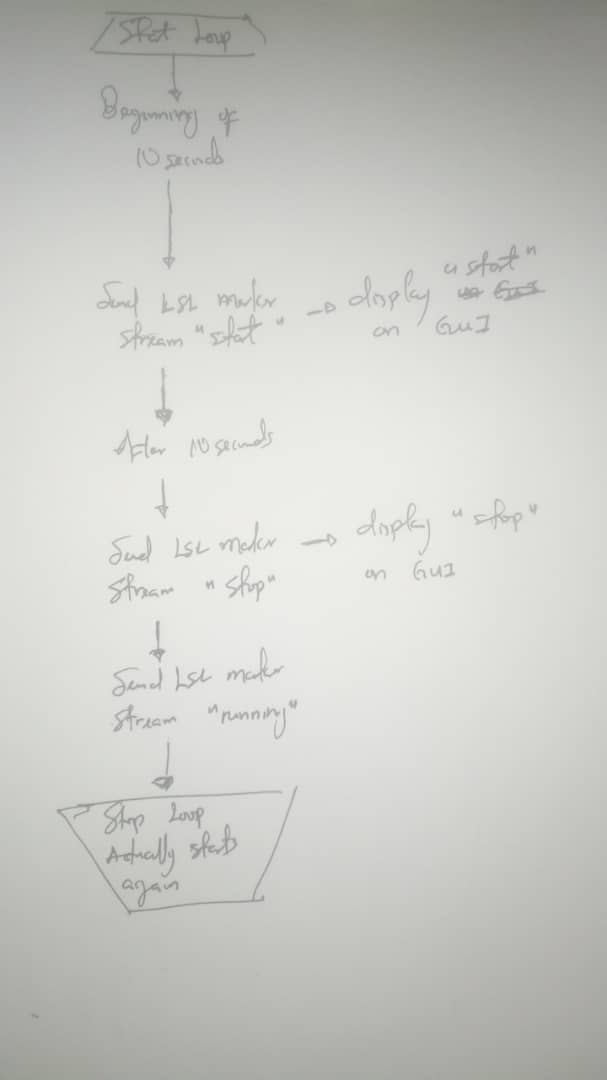 Start Loop
Beginning of
10 seconds
Send LSL marker
stream "start"
display "start"
on GUI
After 10 seconds
Send LSL marker
stream "stop"
display "stop"
on GUI
Send LSL marker
stream "running"
Stop Loop
Actually starts
again